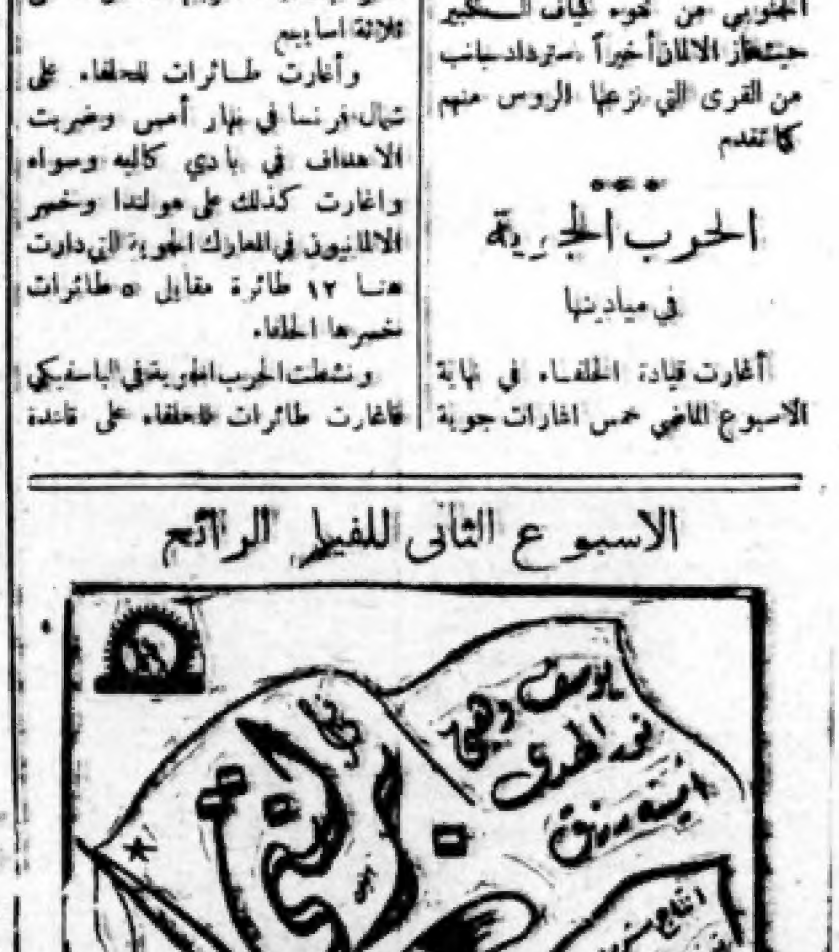 الجنوبي من نحوء كياف الكبير
حيث فاز الالمان أخيراً بسترداد جانب
من القرى التي نزعها الروس منهم
كما تقدم
الحرب الجوية
في ميادينها
أغارت قيادة الحلفاء في نهاية
الاسبوع الماضي خمس اغارات جوية
ثلاثة اسابيع
وأغارت طائرات للحلفاء على
شمال فرنسا في نهار أمس وضربت
الاهداف في بادي كاليه وسواه
واغارت كذلك على هولندا وخسر
الالمانيون في المعارك الجوية التي دارت
هنا ١٢ طائرة مقابل ٥ طائرات
خسرها الحلفاء.
ونشطت الحرب الجوية في الباسفيكي
فاغارت طائرات للحلفاء على قاعدة
الاسبوع الثانى للفيلم الرائع
يوسف وهبي
نور الهدى
أمينه رزق
انتاج